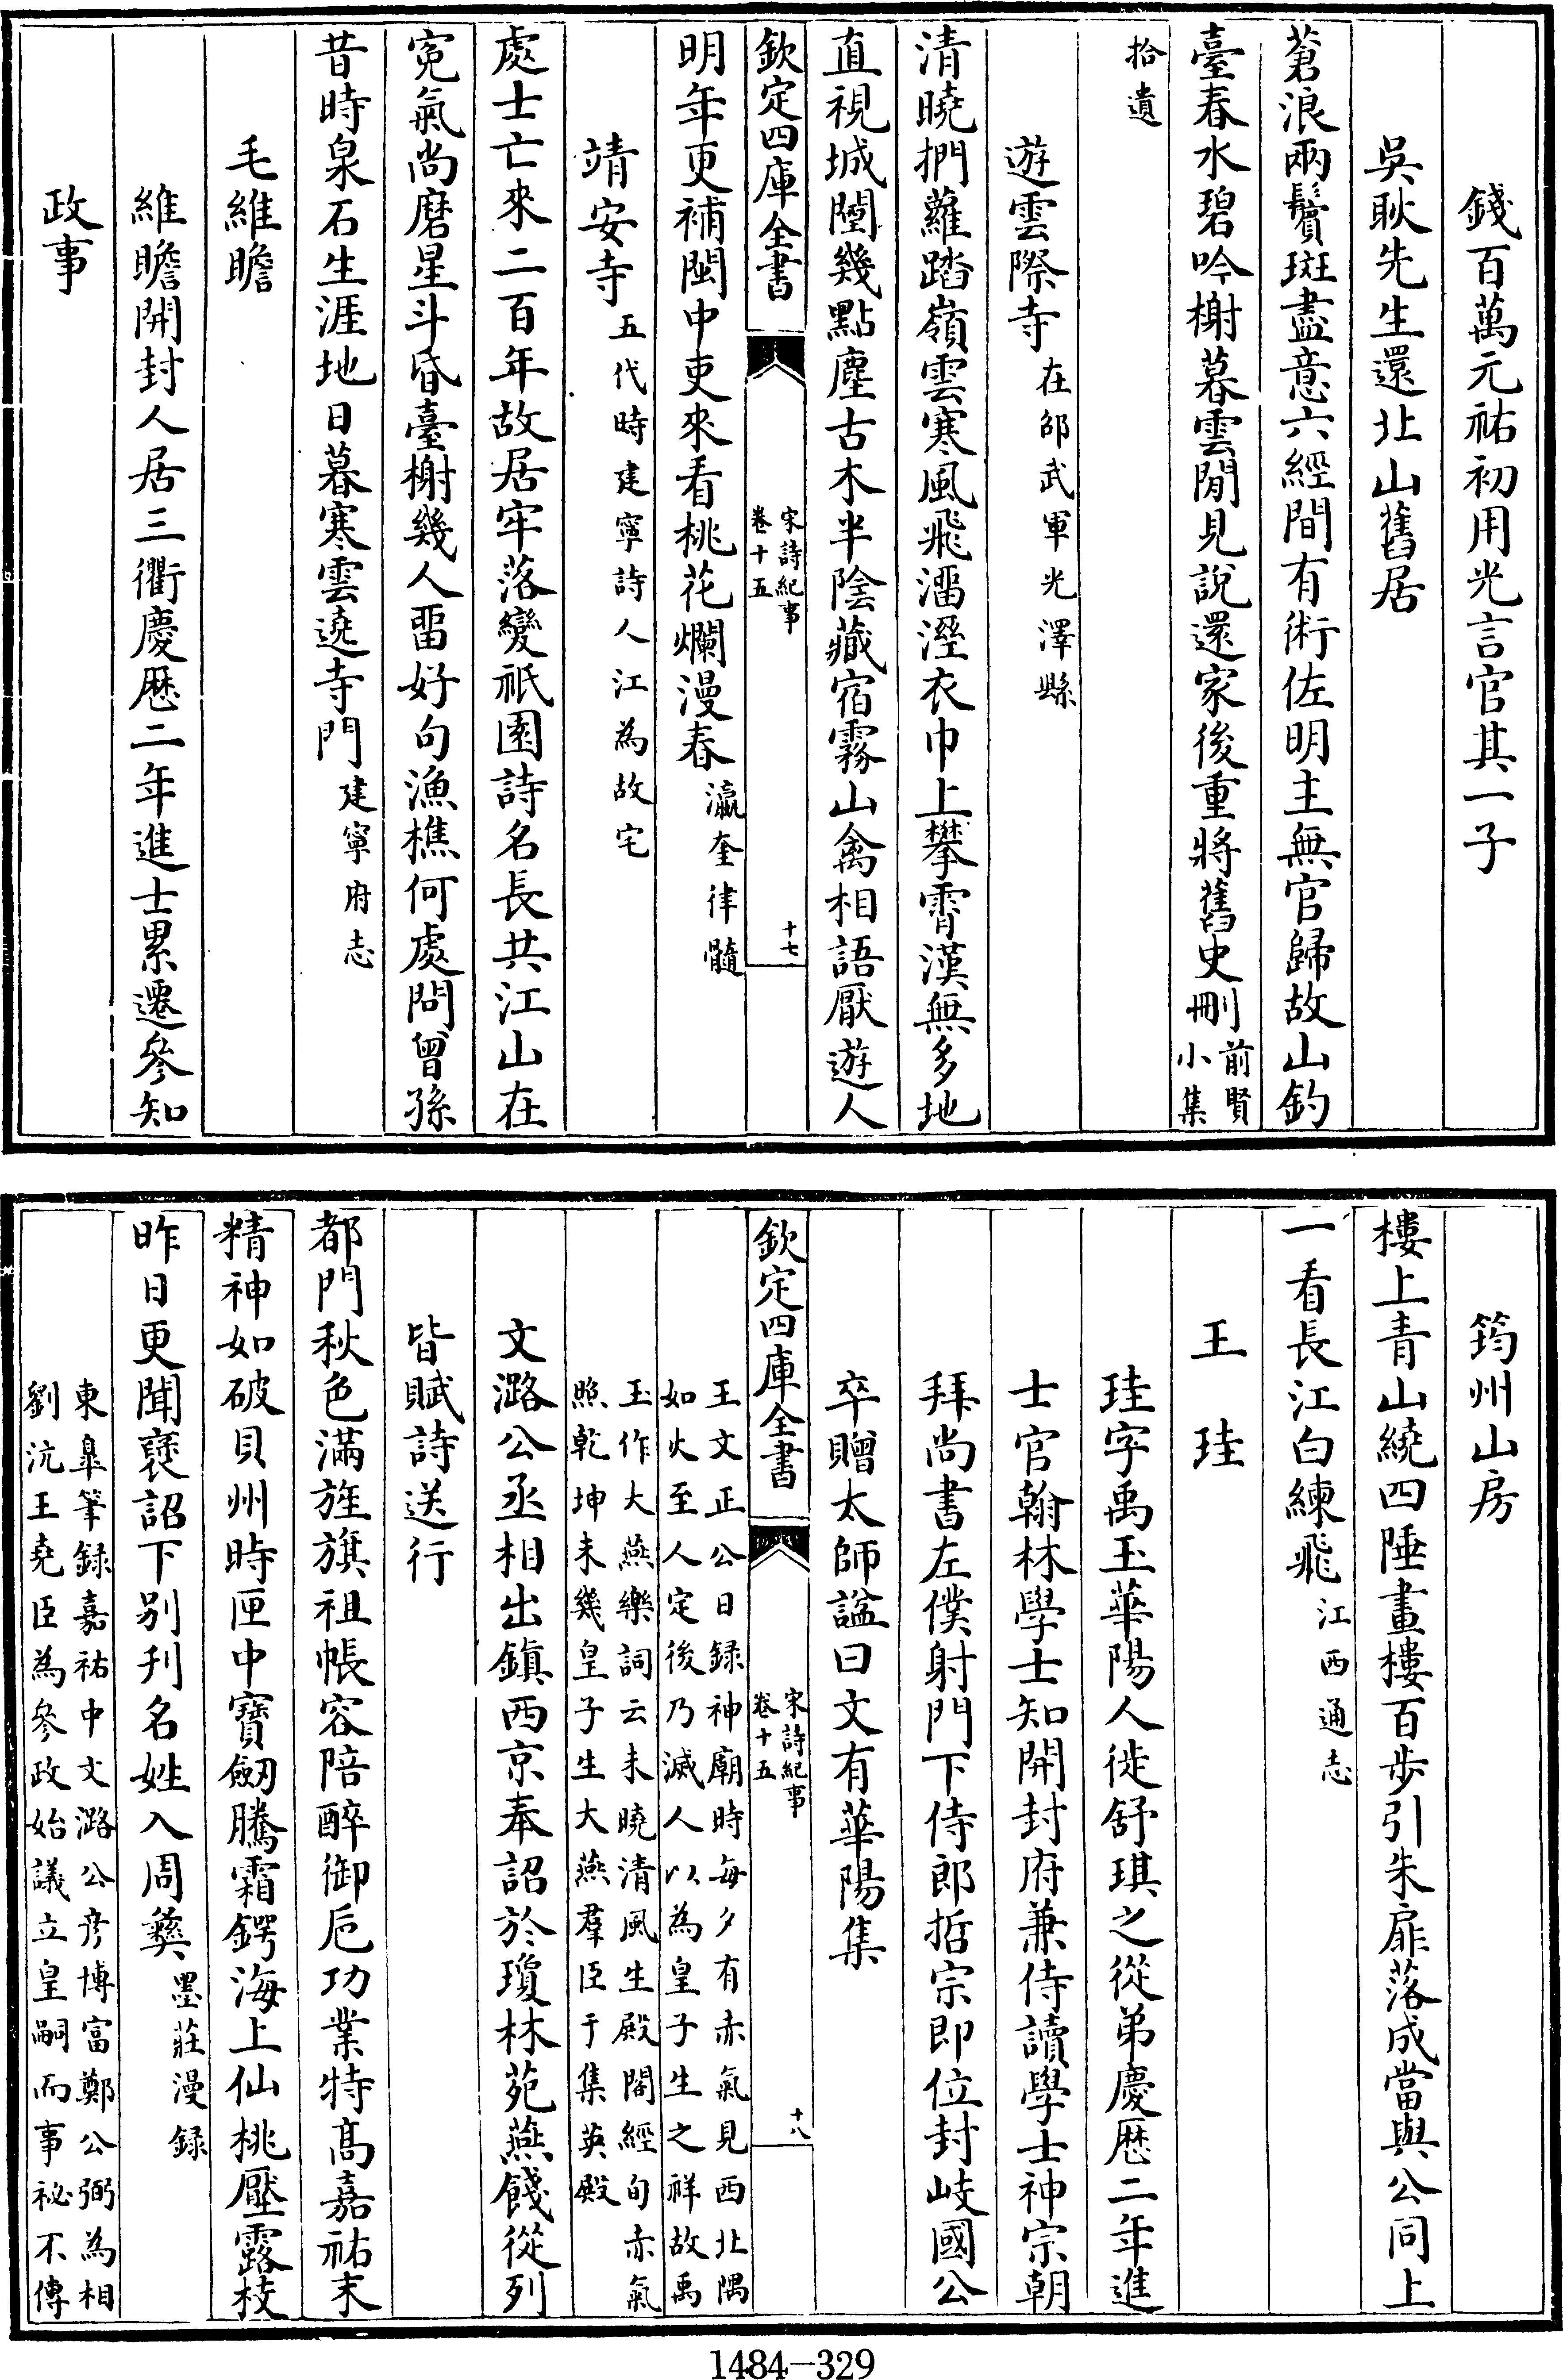 錢百萬元祐初用光言官其一子
吳耿先生還北山舊居
蒼浪兩鬢斑盡意六經間有術佐明主無官歸故山釣
臺春水碧吟榭暮雲閒見說還家後重將舊史刪前賢
小集
拾遺
遊雲際寺在邵武軍光澤縣
清曉捫蘿踏嶺雲寒風飛溜溼衣巾上攀霄漢無多地
直視城闉幾點塵古木半陰藏宿霧山禽相語厭遊人
欽定四庫全書
宋詩紀事
卷十五
十七
明年更補閩中吏來看桃花爛漫春瀛奎律髓
靖安寺五代時建寧詩人江為故宅
處士亡來二百年故居牢落變祇園詩名長共江山在
寃氣尚磨星斗昏臺榭幾人畱好句漁樵何處問曾孫
昔時泉石生涯地日暮寒雲遶寺門建寧府志
毛維瞻
維瞻開封人居三衢慶厯二年進士累遷參知
政事
筠州山房
樓上青山繞四陲畫樓百步引朱扉落成當與公同上
一看長江白練飛江西通志
王珪
珪字禹玉華陽人徙舒琪之從弟慶厯二年進
士官翰林學士知開封府兼侍讀學士神宗朝
拜尚書左僕射門下侍郎哲宗即位封岐國公
卒贈太師諡曰文有華陽集
欽定四庫全書
宋詩紀事
卷十五
十八
王文正公日録神廟時每夕有赤氣見西北隅
如火至人定後乃滅人以為皇子生之祥故禹
玉作大燕樂詞云未曉清風生殿閣經旬赤氣
照乾坤未幾皇子生大燕羣臣于集英殿
文潞公丞相出鎮西京奉詔於瓊林苑燕餞從列
皆賦詩送行
都門秋色滿旌旗祖帳容陪醉御卮功業特髙嘉祐末
精神如破貝州時匣中寶劒騰霜鍔海上仙桃壓露枝
昨日更聞襃詔下别刋名姓入周彝墨莊漫録
東臯筆録嘉祐中文潞公彦博富鄭公弼為相
劉沆王堯臣為參政始議立皇嗣而事祕不傳
1484-329